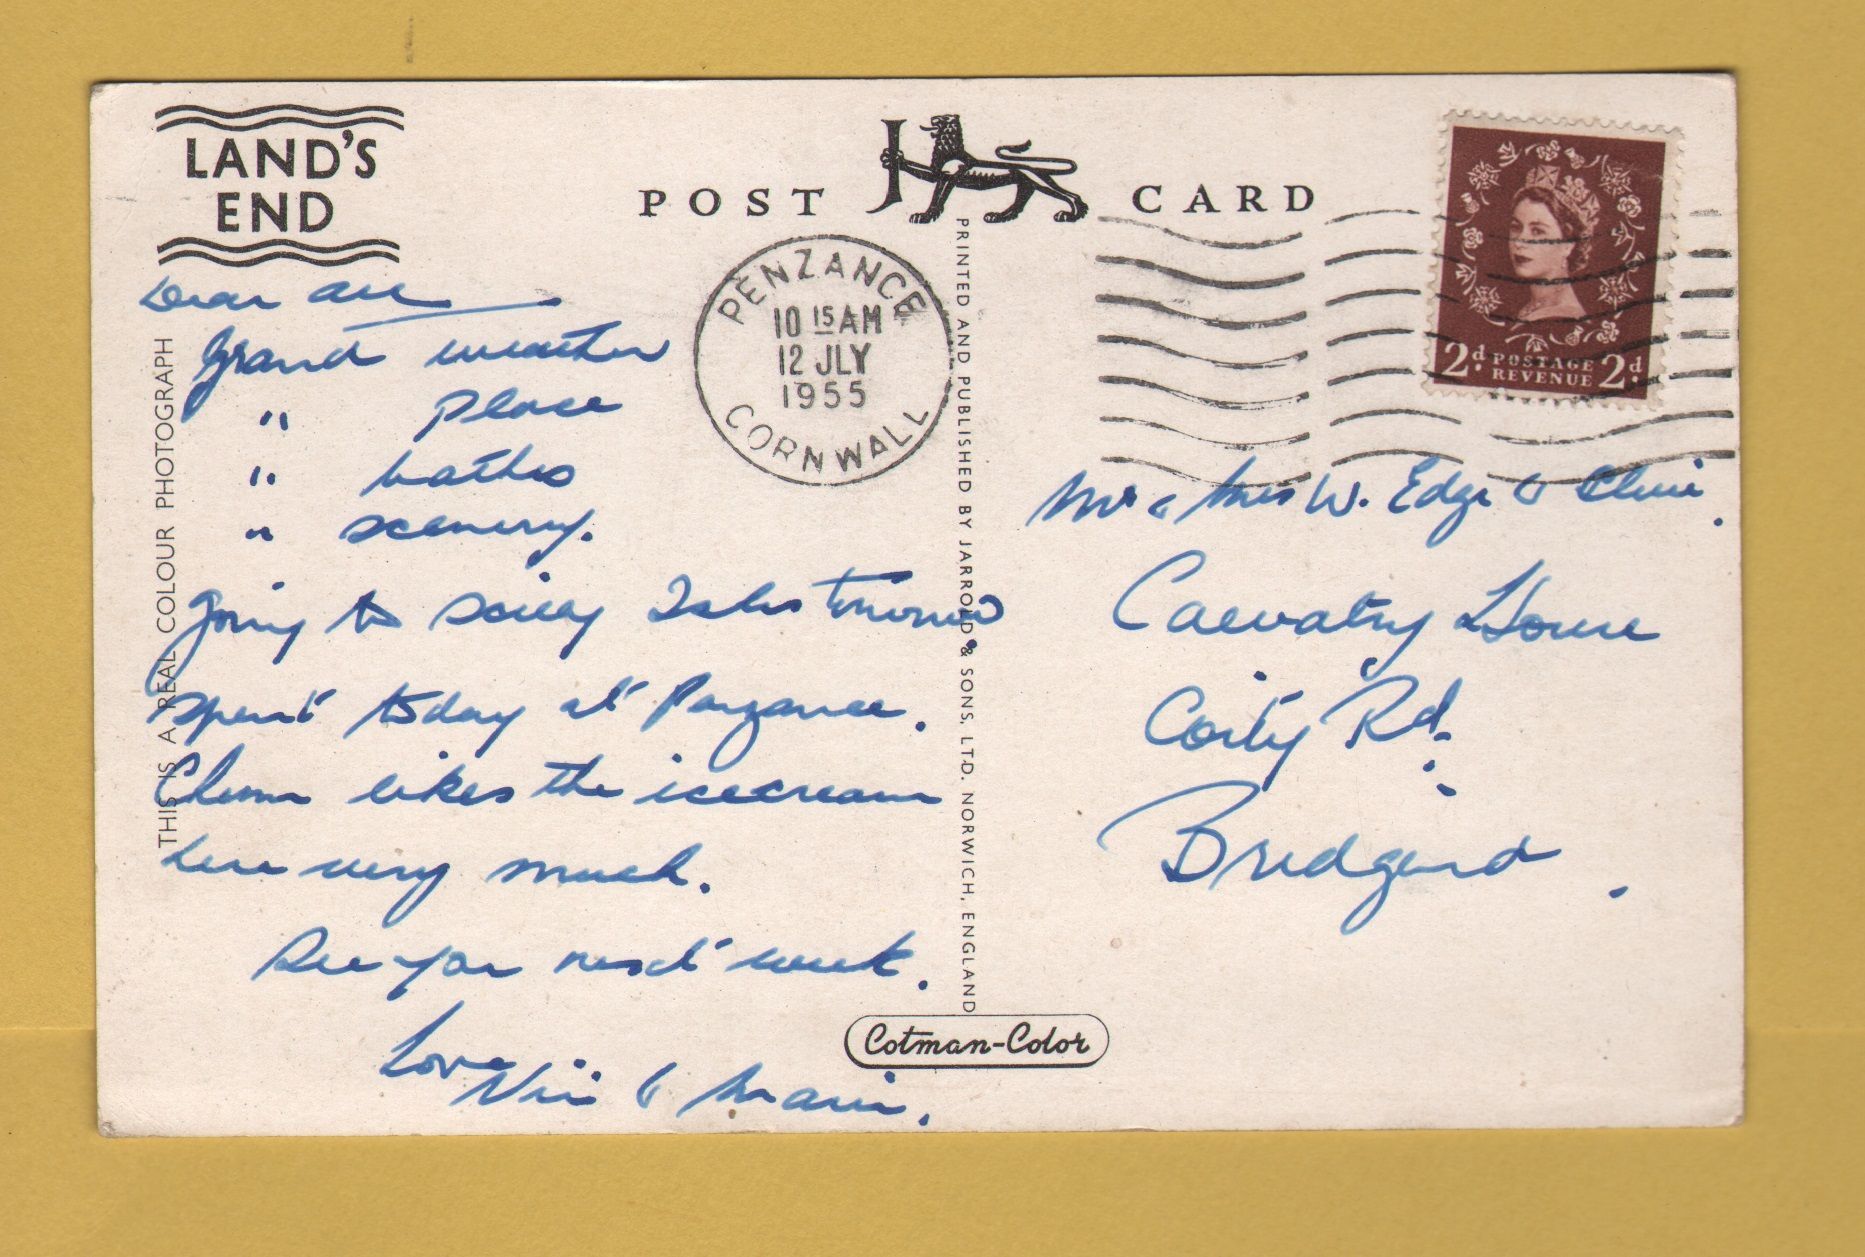 LAND'S
END
POST CARD
PENZANCE
10 15 AM
12 JLY
1955
CORNWALL
2d. POSTAGE 2d.
REVENUE
THIS IS A REAL COLOUR PHOTOGRAPH
Dear all
Grand weather
" place
" bathes
" scenery.
Going to Scilly Isles tomorrow.
Spent today at Penzance.
likes the icecream
here very much.
See you next week.
Love
&
PRINTED AND PUBLISHED BY JARROLD & SONS, LTD. NORWICH, ENGLAND
Cotman-Color
Mr & Mrs W. Edge &
House
Coity Rd.
Bridgend.